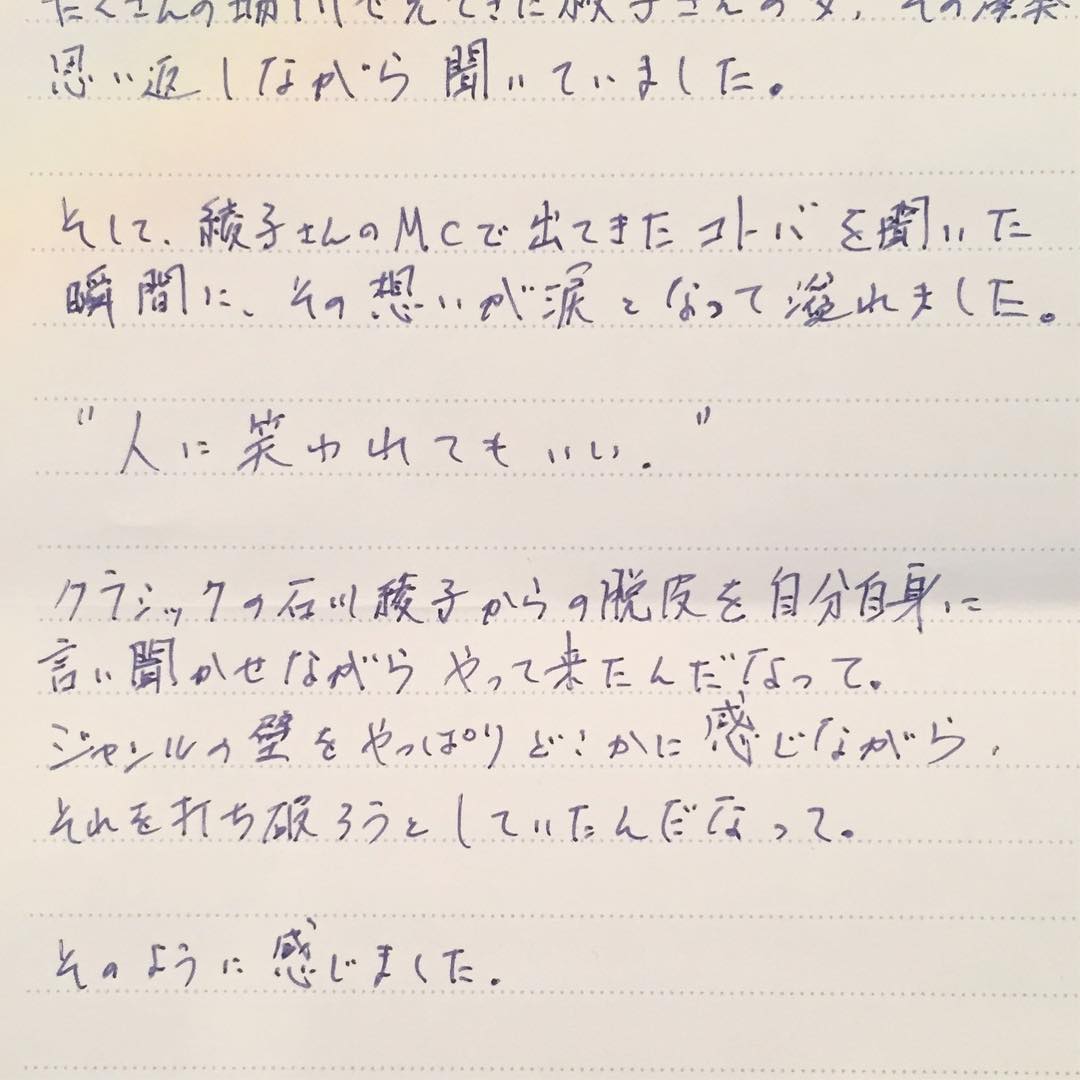 たくさんの場所で見てきた綾子さんの姿、その演奏
思い返しながら聞いていました。
そして、綾子さんのMCで出てきたコトバを聞いた
瞬間に、その想いが涙となって溢れました。
"人に笑われてもいい."
クラシックの石川綾子からの脱皮を自分自身に
言い聞かせながらやって来たんだなって。
ジャンルの壁をやっぱりどこかに感じながら、
それを打ち破ろうとしていたんだなって。
そのように感じました。